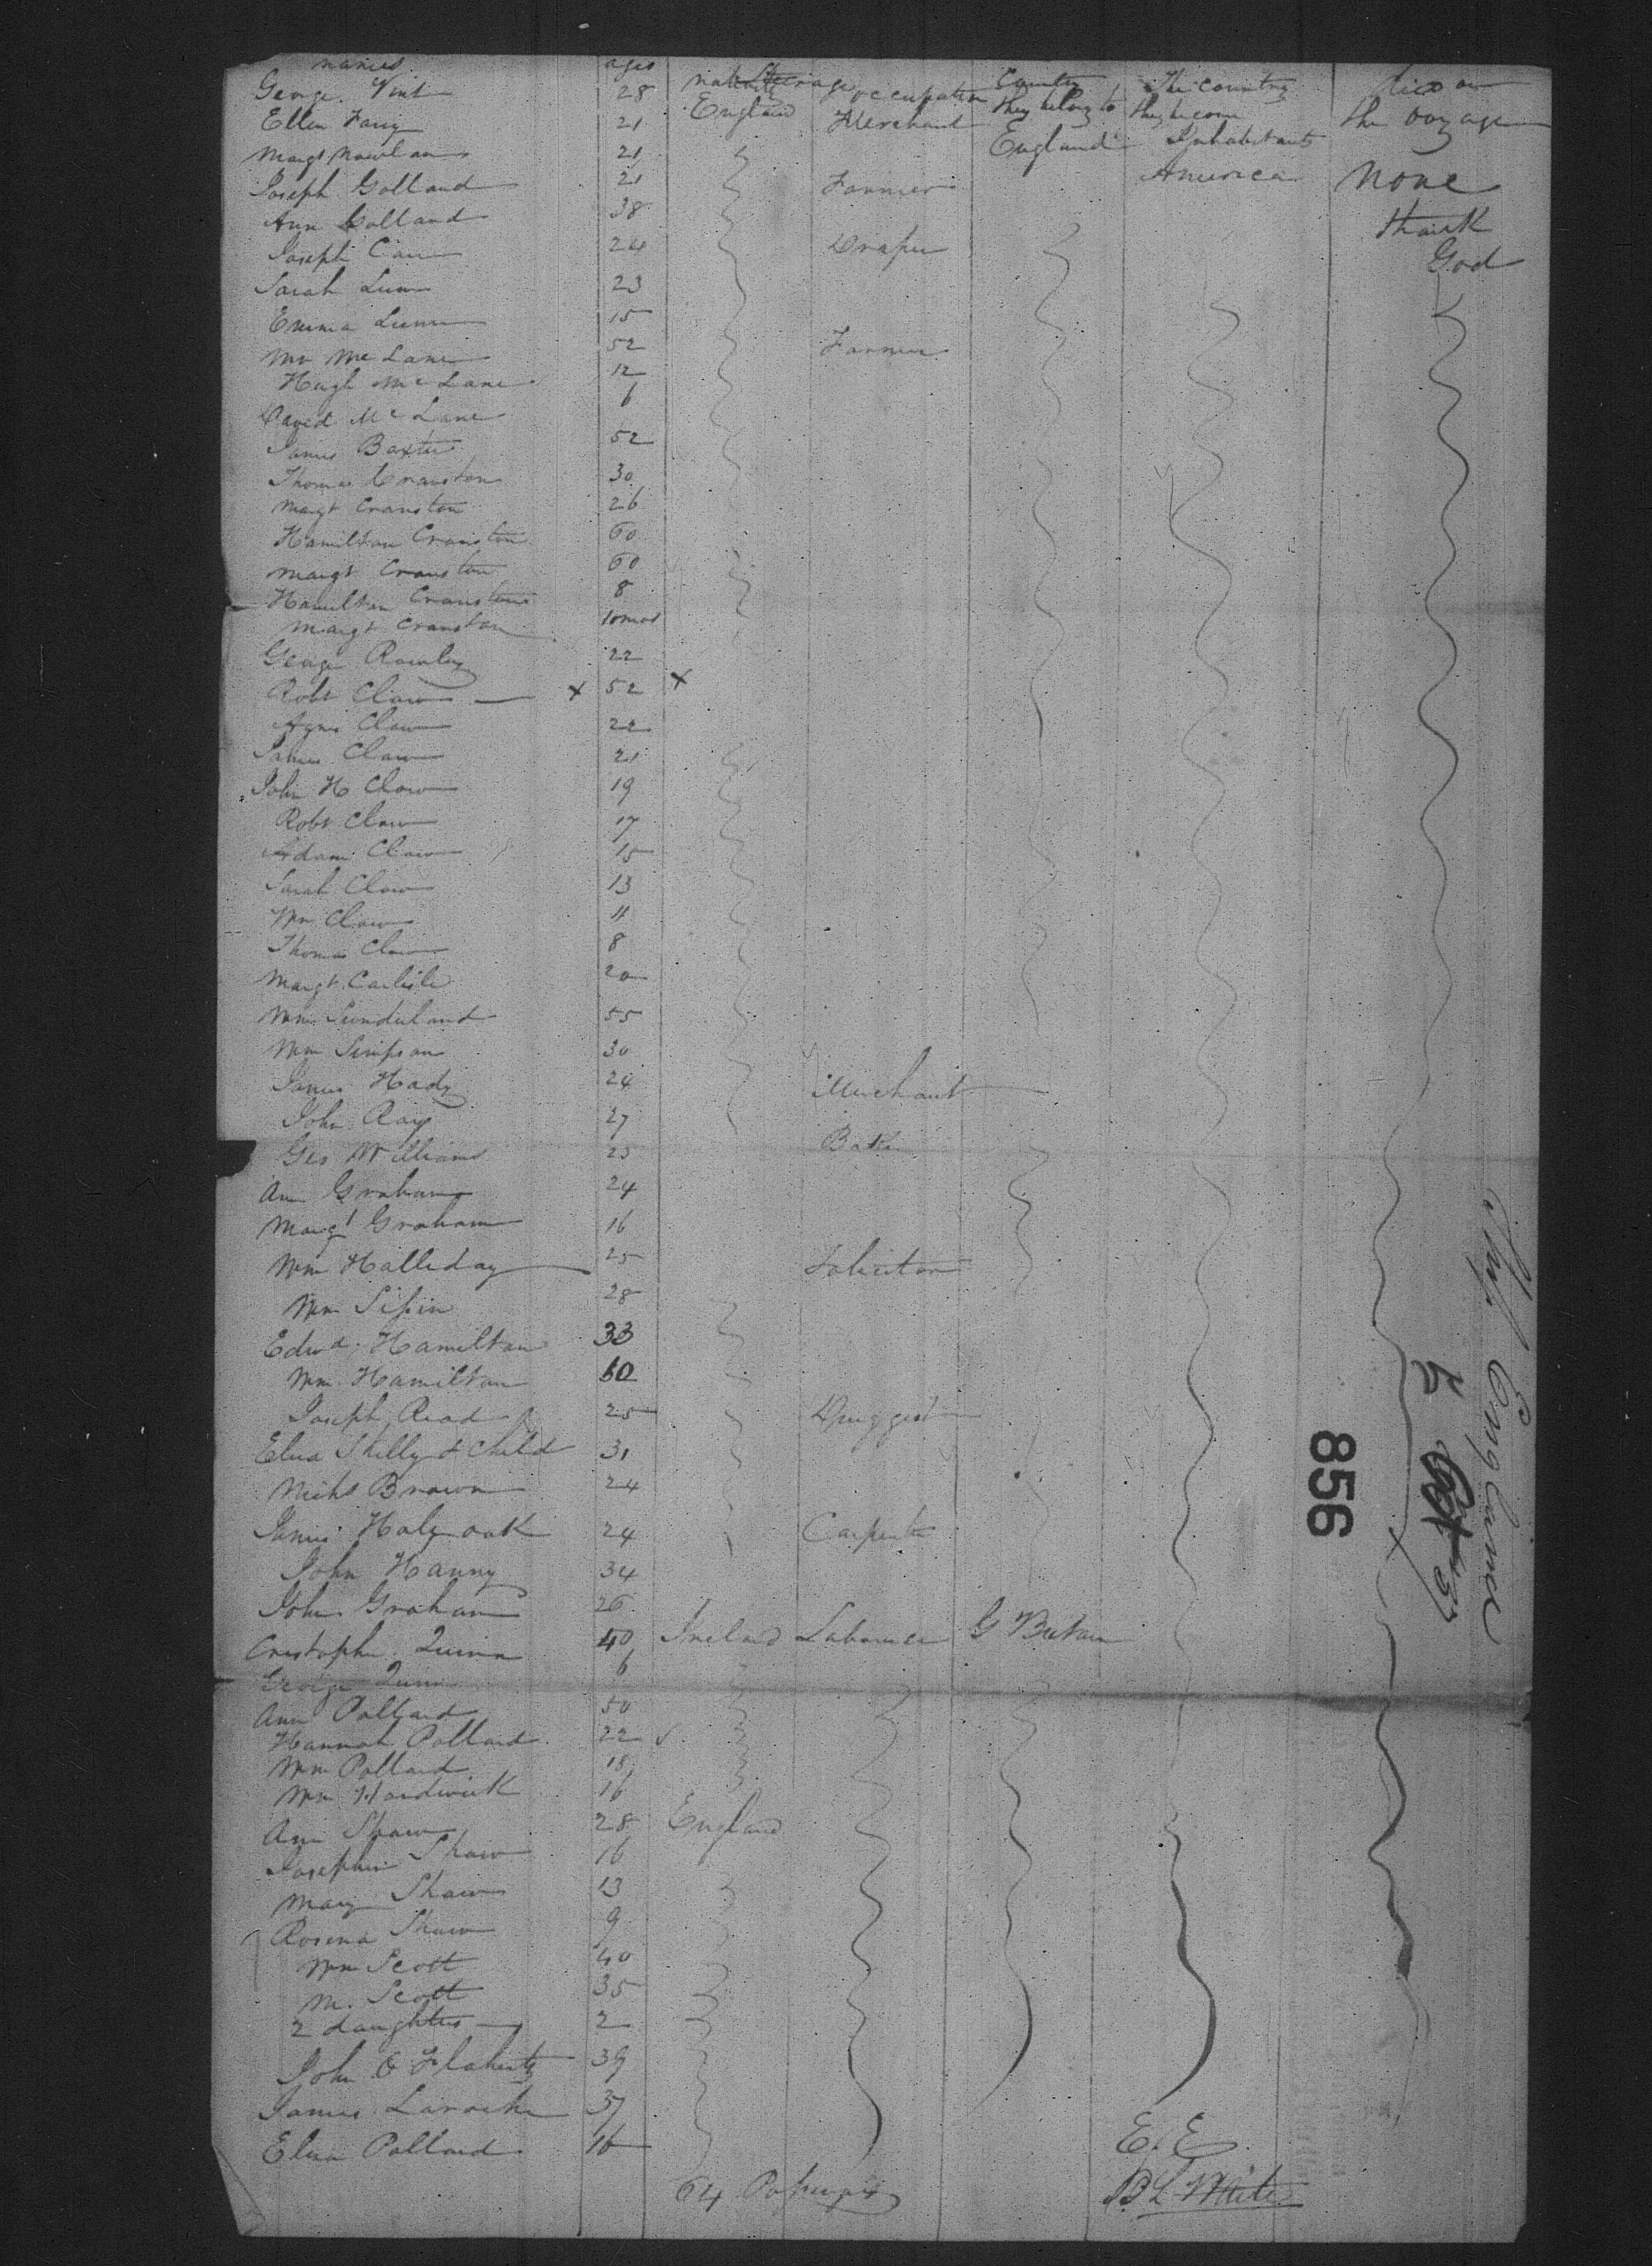 names ages nativity occupation Country they belong to The country they become Inhabitants died on the voyage
George Vint 28 England Merchant England America None thank God
Ellen 21
Margt Nowlan 21
Joseph Golland 21 Farmer
Ann Golland 38
Joseph 24 Draper
Sarah Lunn 23
Emma Lunn 15
Wm McLane 52 Farmer
Hugh McLane 12
David McLane 6
James Baxter 52
Thomas Cranston 30
Margt Cranston 26
Hamilton Cranston 60
Margt Cranston 60
Hamilton Cranston 8
Margt Cranston 10 mos
George Rowley 22
Robt Claw x 52 x
Agnes Claw 22
James Claw 21
John H Claw 19
Robt Claw 17
Adam Claw 15
Sarah Claw 13
Wm Claw 11
Thomas Claw 8
Margt Carlisle 20
Wm Sunderland 55
Wm Simpson 30
James Hady 24 Merchant
John Ray 27
Geo Williams 25 Baker
Ann Graham 24
Margt Graham 16
Wm Halliday 25 Solicitor
Wm 28
Edwd Hamilton 33
Wm Hamilton 60
Joseph Read 25 Druggist
Eliza Skelly & Child 31
Michl Brown 24
James Holyoak 24 Carpenter
John Hanny 34
John Graham 26
Cristopher Quinn 40 Ireland Labourer G Britain
George Quinn 6
Ann Pollard 50
Hannah Pollard 22
Wm Pollard 18
Wm Hardwick 16
Ann Shaw 28 England
Josephine Shaw 16
Mary Shaw 13
Rosena Shaw 9
Wm Scott 40
M. Scott 35
2 daughters 2
John O Flaherty 39
James Laroche 37
Eliza Pollard 16
E. E.
64 Passengers
B L Waite
856
Ship